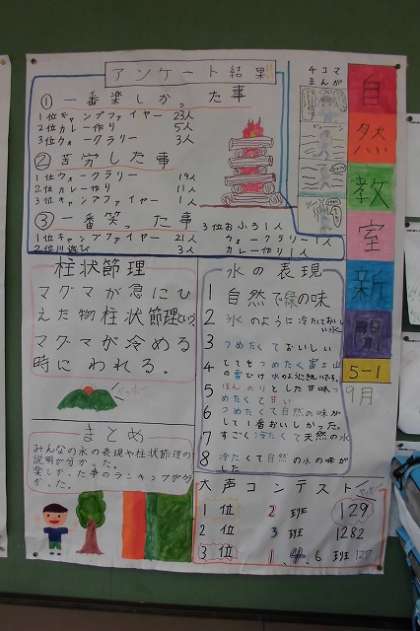 アンケート結果
① 一番楽しかった事
1位キャンプファイヤー 23人
2位カレー作り 5人
3位ウォークラリー 3人
② 苦労した事
1位ウォークラリー 19人
2位カレー作り 11人
3位キャンプファイヤー 1人
③ 一番笑った事
1位キャンプファイヤー 21人
2位川遊び 3人
3位おふろ1人
ウォークラリー1人
カレー作り1人
4コマ
まんが
自然教室新聞
5-1
9月
柱状節理
マグマが急にひ
えた物柱状節理という
マグマが冷める
時にわれる。
まとめ
みんなの水の表現や柱状節理の
説明が分かった。
楽しかった事のランキングが分
かった。
水の表現
1 自然で緑の味
2 氷のように冷たておいし
い水
3 つめたくておいしい
4 とてもつめたく富士山
の雪どけ水のように
5 ほんのりとした甘味つ
めたくて甘い
6 つめたくて自然の味が
して1番おいしかった。
7 すごく冷たくて天然の水
8 冷たくて自然の水の味が
した
大声コンテスト
1位 2班 129
2位 3班 1282
3位 1、4、6班 127